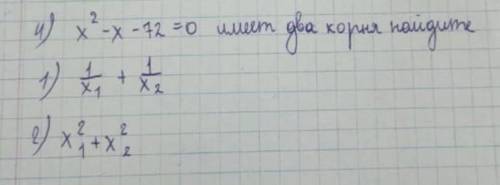 4) x² - x - 72 = 0 имеет два корня найдите
1) 1/x₁ + 1/x₂
2) x₁² + x₂²